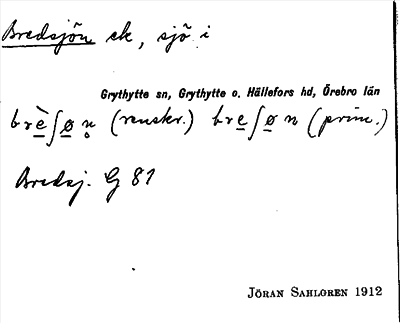 Bredsjön ek, sjö i
Grythytte sn, Grythytte o. Hällefors hd, Örebro län
brèʃøn̥ (renskr.) breʃøn (prim.)
Bredsj. G 81
JÖRAN SAHLGREN 1912